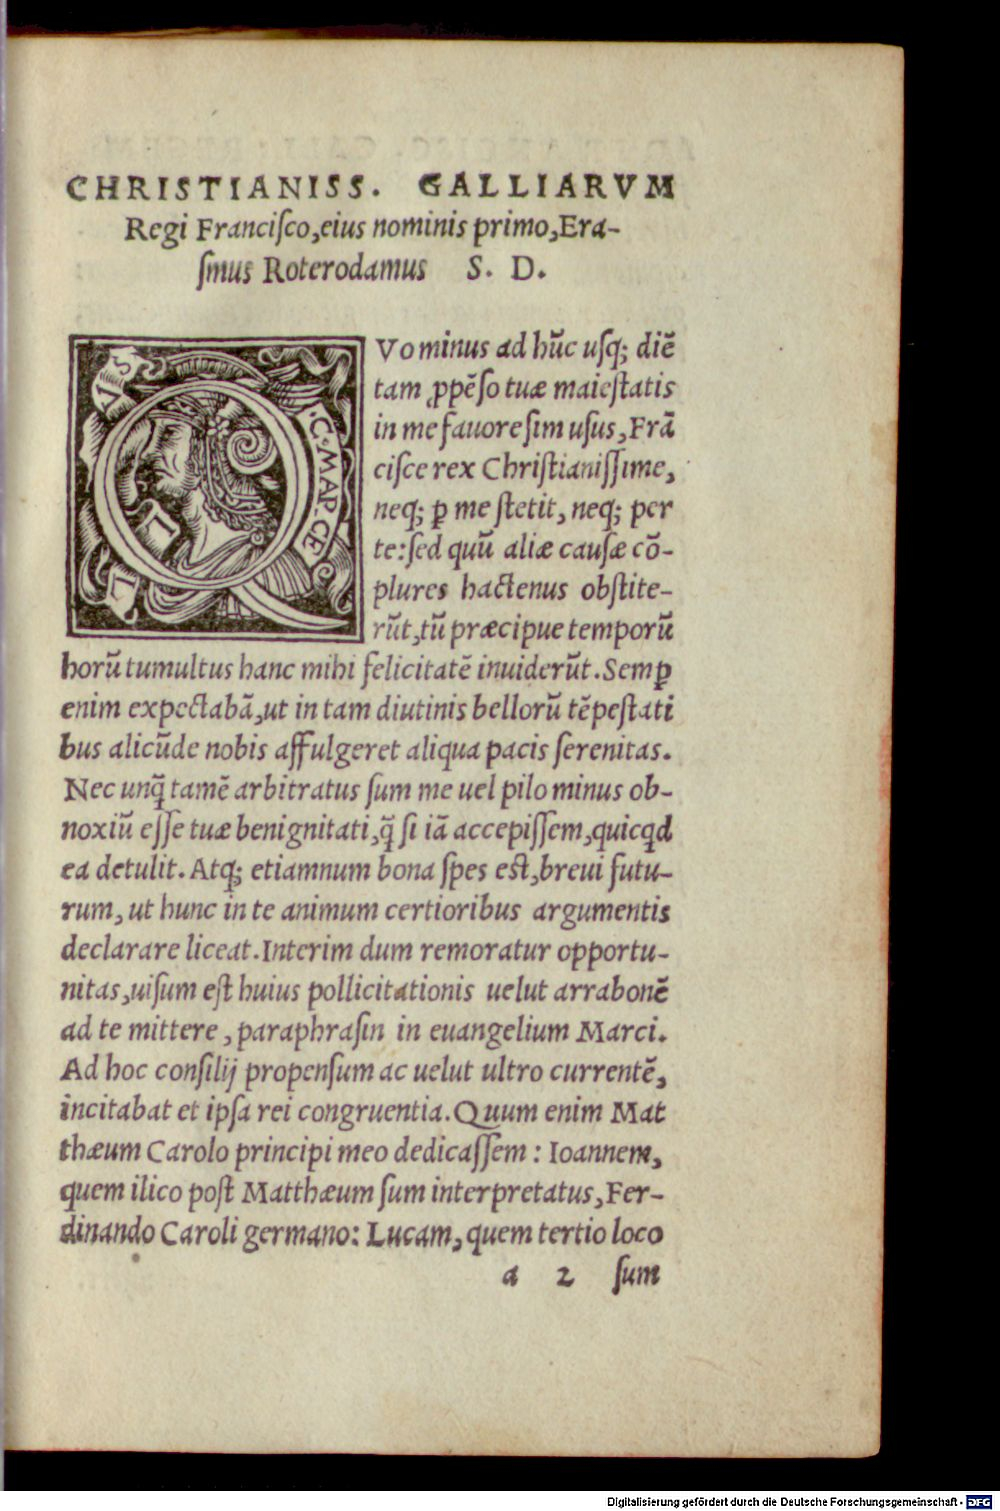 CHRISTIANISS. GALLIARVM
Regi Franciſco, eius nominis primo, Era-
ſmus Roterodamus S. D.
QVo minus ad hūc uſq; diē
tam ꝓpēſo tuæ maieſtatis
in me fauore ſim uſus, Frā
ciſce rex Chriſtianiſſime,
neq; ꝑ me ſtetit, neq; per
te: ſed quū aliæ cauſæ cō-
plures hactenus obſtite-
rūt, tū præcipue temporū
horū tumultus hanc mihi felicitatē inuiderūt. Semꝑ
enim expectabā, ut in tam diutinis bellorū tēpeſtati
bus alicūde nobis affulgeret aliqua pacis ſerenitas.
Nec unq̄ tamē arbitratus ſum me uel pilo minus ob-
noxiū eſſe tuæ benignitati, q̄ ſi iā accepiſſem, quicqd
ea detulit. Atq; etiamnum bona ſpes eſt, breui futu-
rum, ut hunc in te animum certioribus argumentis
declarare liceat. Interim dum remoratur opportu-
nitas, uiſum eſt huius pollicitationis uelut arrabonē
ad te mittere, paraphraſin in euangelium Marci.
Ad hoc conſilij propenſum ac uelut ultro currentē,
incitabat et ipſa rei congruentia. Quum enim Mat
thæum Carolo principi meo dedicaſſem: Ioannem,
quem ilico poſt Matthæum ſum interpretatus, Fer-
dinando Caroli germano: Lucam, quem tertio loco
a 2 ſum
Digitalisierung gefördert durch die Deutsche Forschungsgemeinschaft - DFG